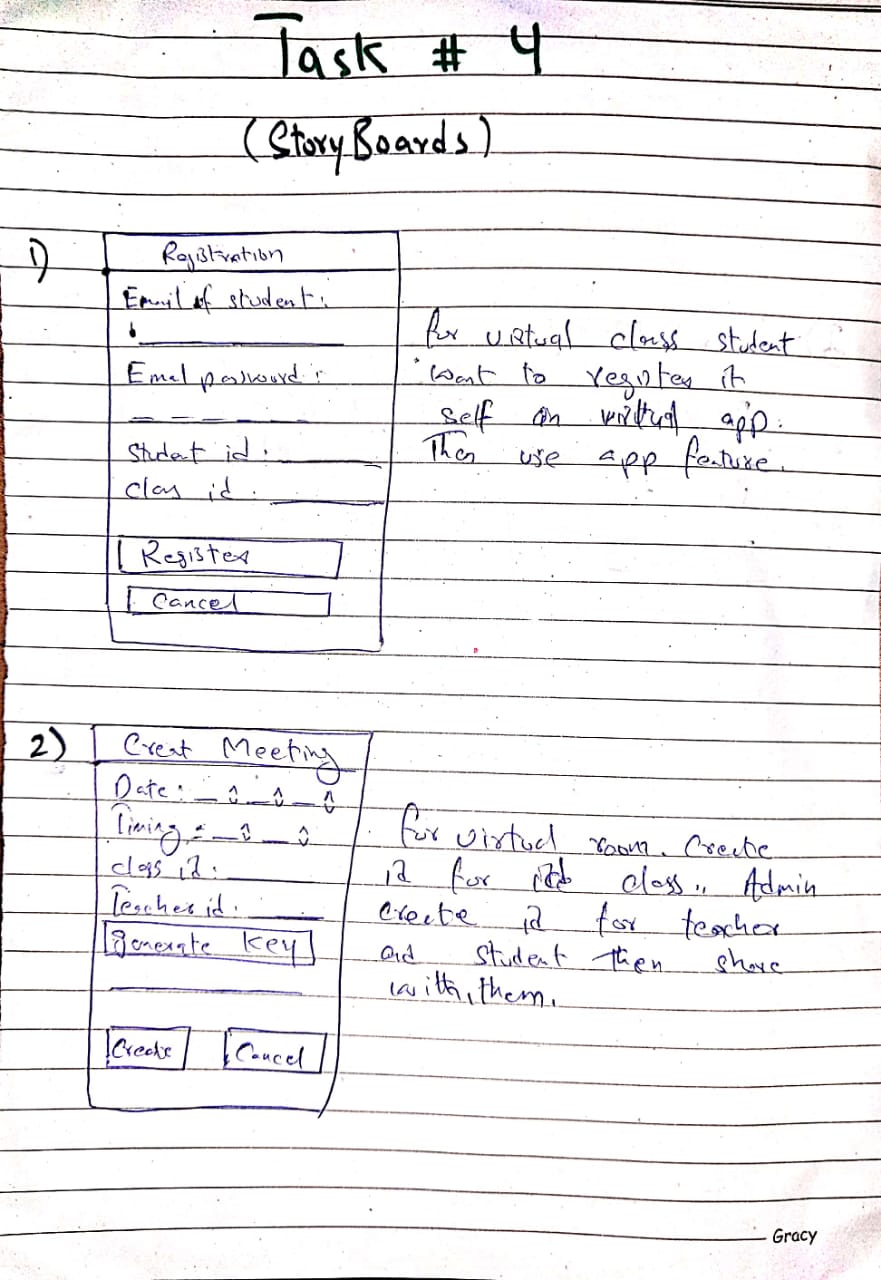 Task # 4
(StoryBoards)
1)
Registration
Email of student:
Email password:
Student id:
Class id:
Register
Cancel
for virtual class student
want to register it
self on virtual app.
Then use app feature.
2)
Creat Meeting
Date:
Timing:
class id:
Teacher id:
generate key
Create
Cancel
for virtual room. Create
id for class. Admin
create id for teacher
and student then share
with them.
Gracy